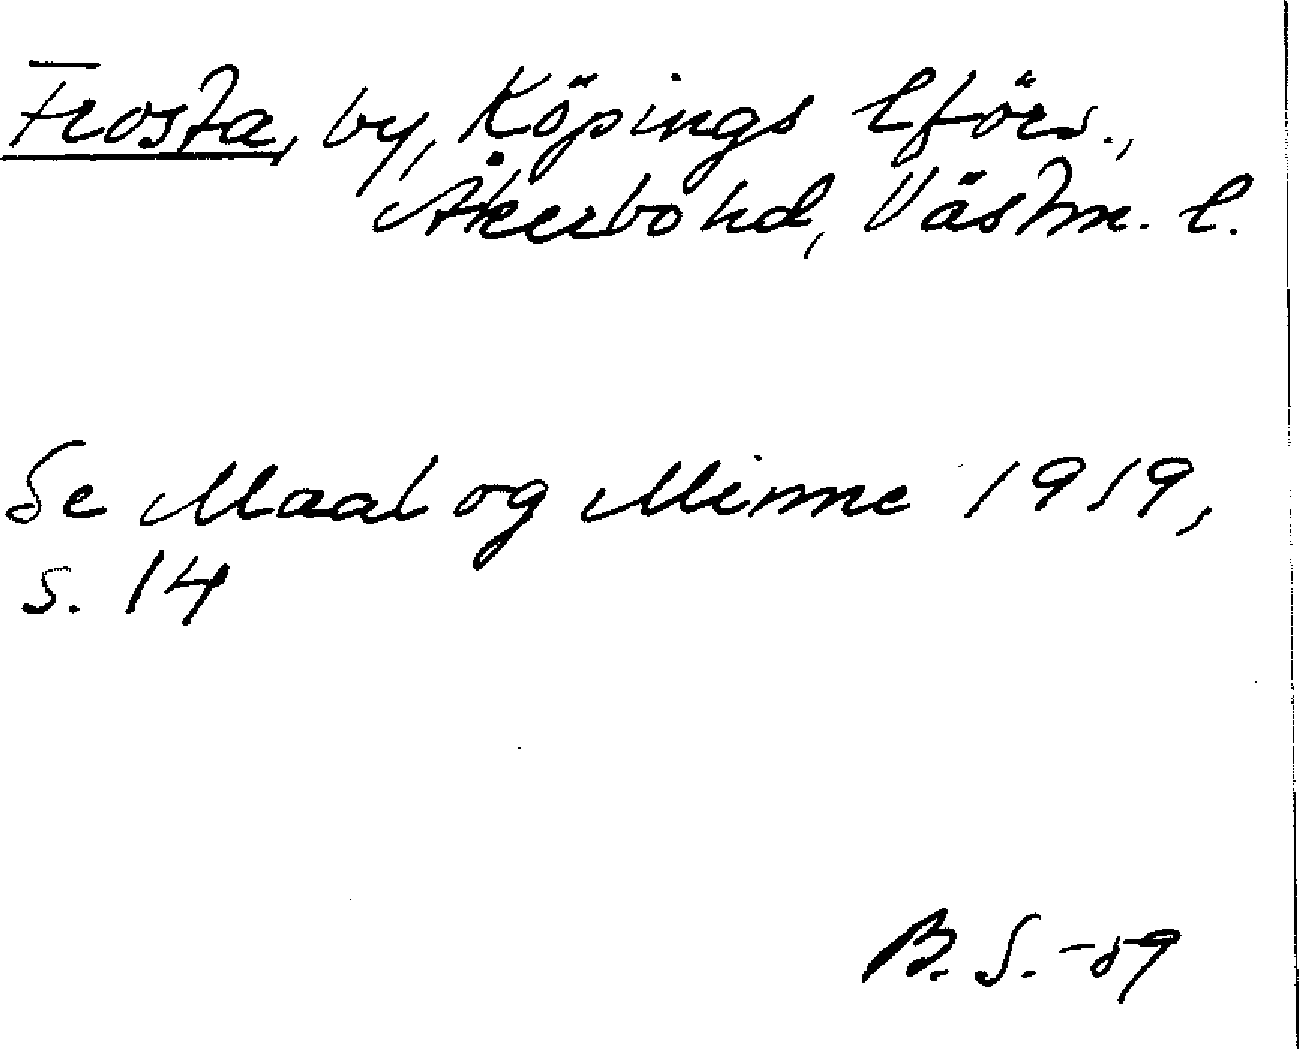 Frosta, by, Köpings lförs.,
Åkerbo hd, Västm. l.
Se Maal og Minne 1919,
s. 14
B. S. -59